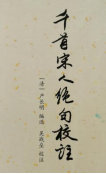 千首宋人绝句校註
〔清〕严长明 编选 吴战垒 校注